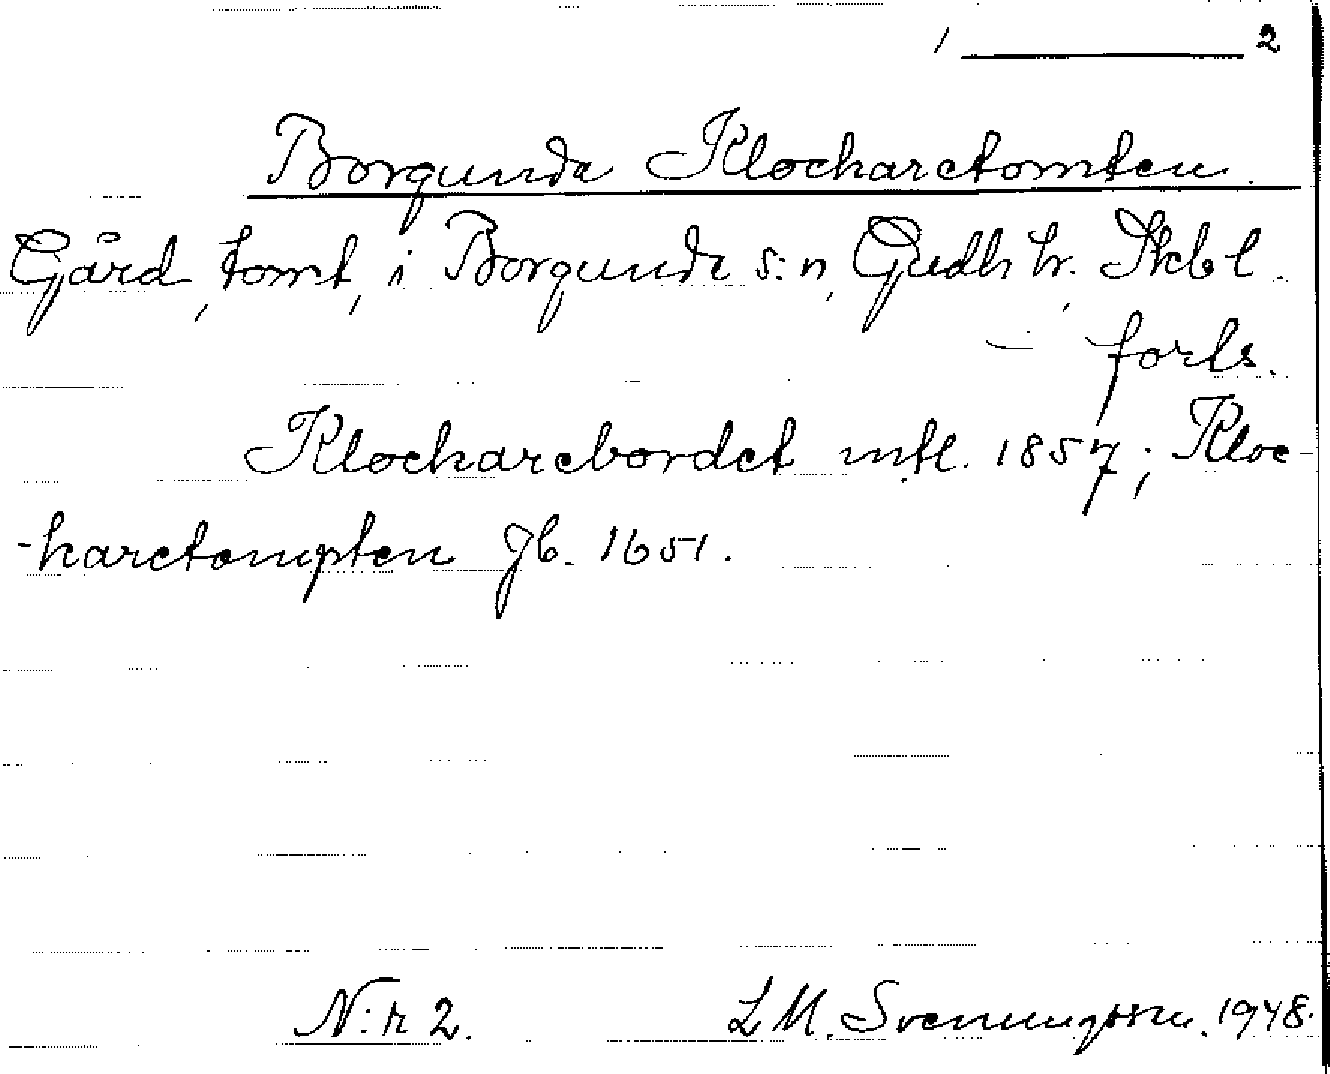 1 ——— 2
Borgunda Klockaretomten.
Gård, tomt, i Borgunda s:n, Gudh hr. Skbl.
— forts.
Klockarebordet mtl. 1857; Kloc-
-karetompten Jb. 1651.
N:r 2. L M. Svenungsson. 1948.